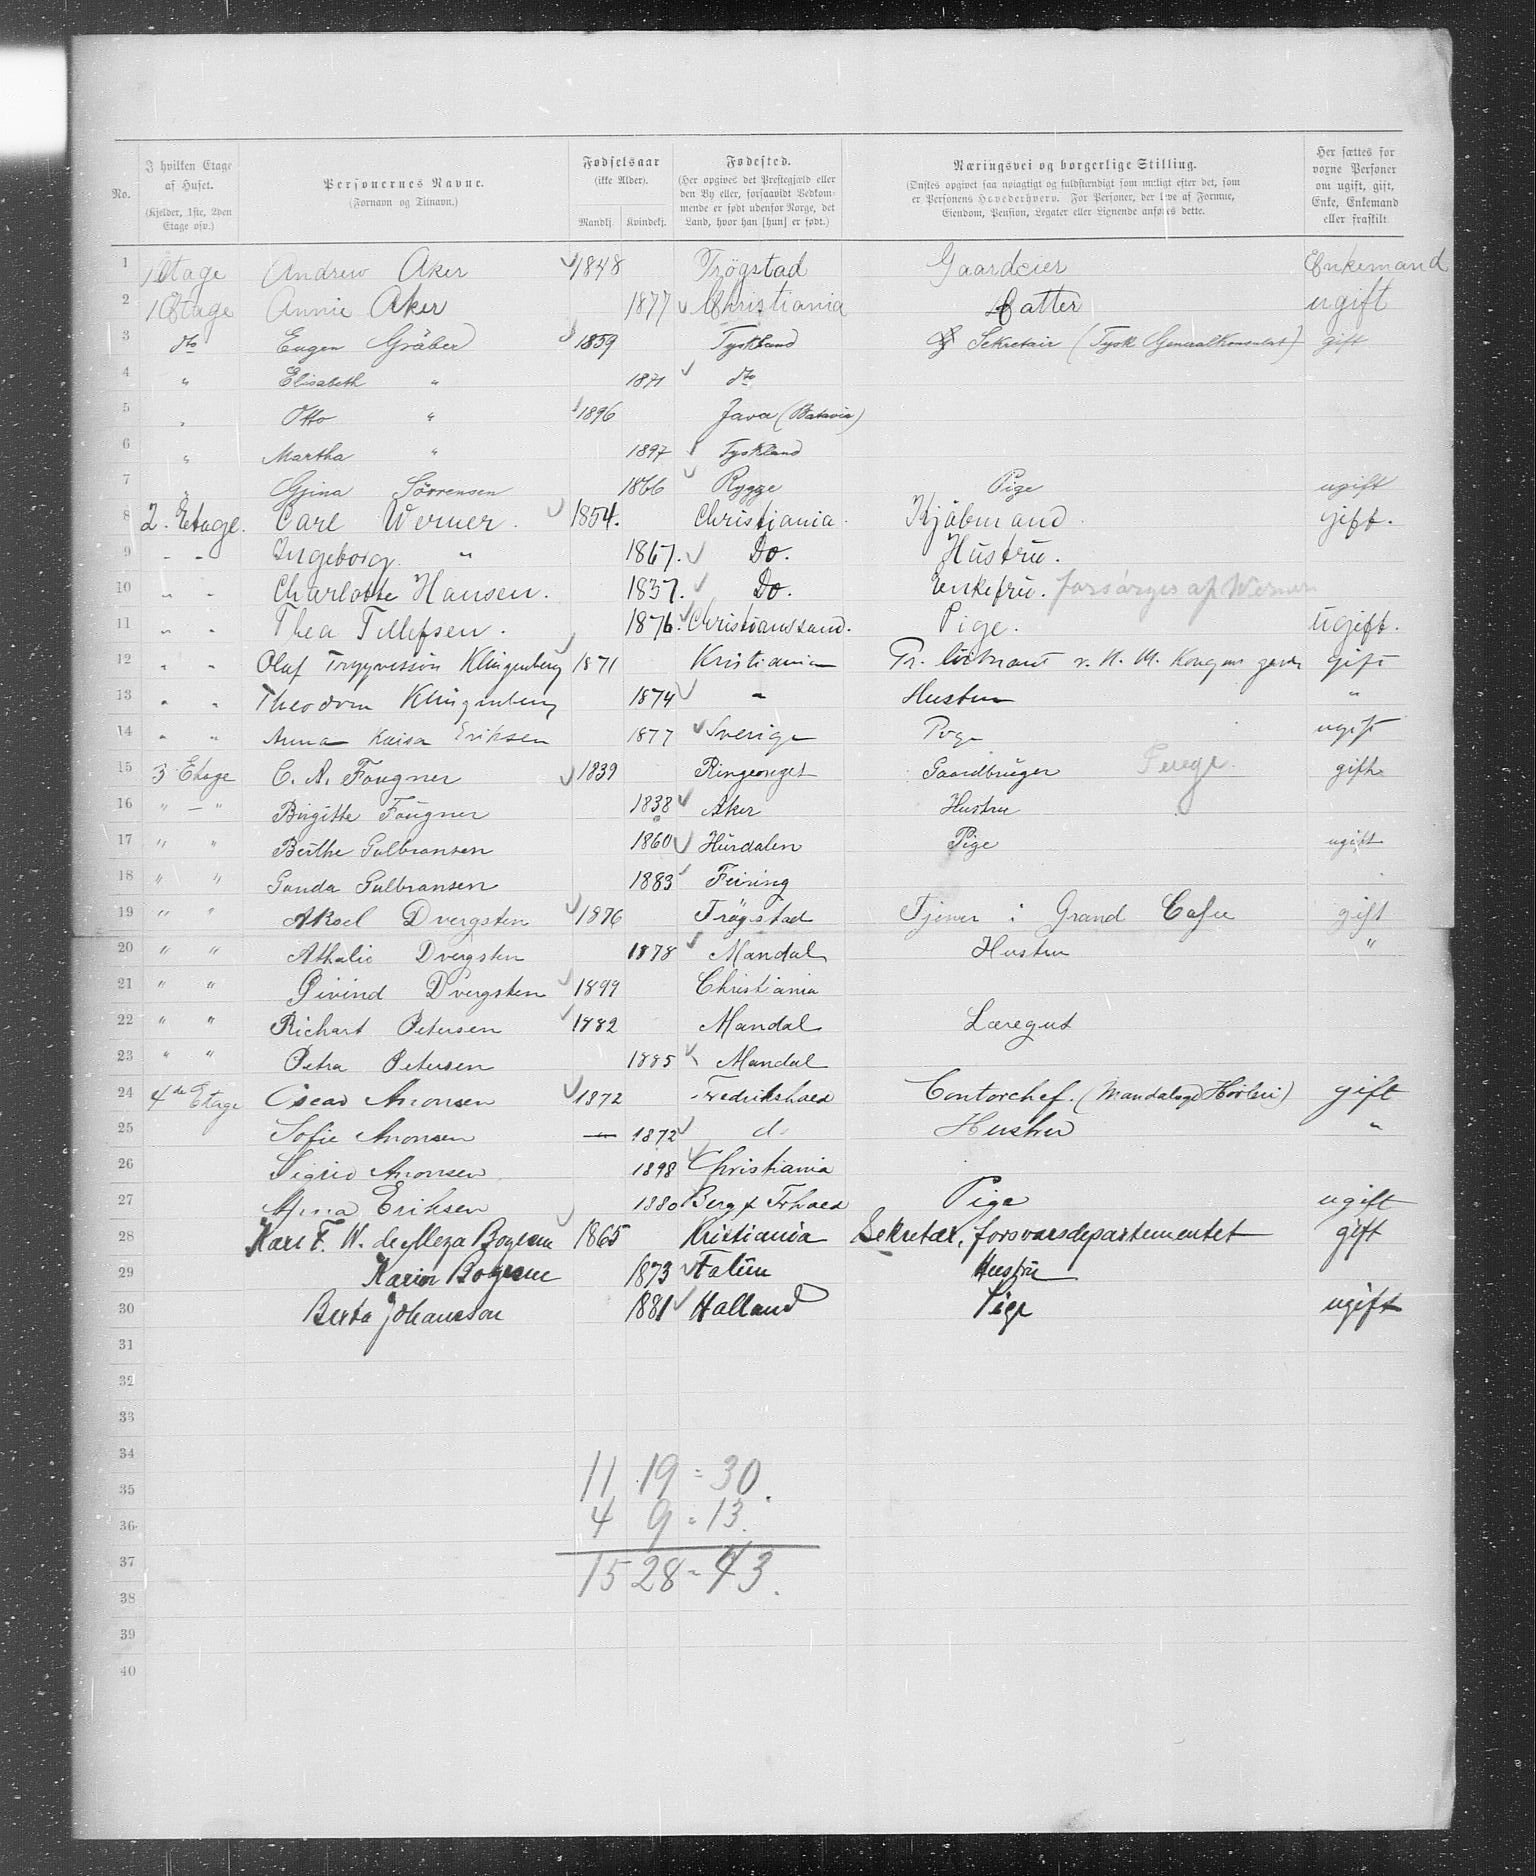 No. | I hvilken Etage af Huset. (Kjelder, 1ste, 2den Etage osv.) | Personernes Navne. (Fornavn og Tilnavn.) | Fødselsaar (ikke Alder). Mandkj. Kvindekj. | Fødested. (Her opgives det Prestegjæld eller den By eller, forsaavidt Vedkommende er født udenfor Norge, det Land, hvor han [hun] er født.) | Næringsvei og borgerlige Stilling. (Ønskes opgivet saa nøiagtigt og fuldstændigt som muligt efter det, som er Personens Hovederhverv. For Personer, der leve af Formue, Eiendom, Pension, Legater eller Lignende anføres dette. | Her sættes for voxne Personer om ugift, gift, Enke, Enkemand eller fraskilt.
1 1 Etage Andrew Aker 1848 Trögstad Gaardeier Enkemand
2 1 Etage Annie Aker 1877 Christiania Datter ugift
3 dto Eugen Gräber 1859 Tyskland Sekretair (Tysk Generalkonsulat) gift
4 " Elisabeth " 1871 dto
5 " Otto " 1896 Java (Batavia)
6 " Martha " 1897 Tyskland
7 " Gjina Sörrensen 1866 Rygge Pige ugift
8 2. Etage. Carl Werner. 1854. Christiania. Kjøbmand. gift.
9 " " Ingeborg. " 1867. Do. Hustru.
10 " " Charlotte Hansen. 1837. Do. Enkefru. forsörges af Werner
11 " " Thea Tellefsen. 1876. Christianssand. Pige. Ugift.
12 " " Olaf Tryggvessön Klingenberg 1871 Kristiania Pr. löitnant v. H. M. Kongens garde gift
13 " " Theodora Klingenberg 1874 " Hustru "
14 " " Anna Kaisa Eriksen 1877 Sverige Pige ugift
15 3 Etage C. A. Fougner 1839 Ringeriget Gaardbruger gift
16 " — " Birgitte Fougner 1838 Aker Hustru
17 " " Berthe Gulbransen 1860 Hurdalen Pige ugift
18 " " Ganda Gulbransen 1883 Feiring
19 " " Aksel Dvergsten 1876 Trögstad Tjener i Grand Cafee gift
20 " " Athalie Dvergsten 1878 Mandal Hustru "
21 " " Øivind Dvergsten 1899 Christiania
22 " " Richart Petersen 1882 Mandal Læregut
23 " " Petra Petersen 1885 Mandal
24 4de Etage Oscar Amonsen 1872 Fredrikshald Contorchef. gift
25 Sofie Amonsen 1872 d. Hustru "
26 Sigrid Amonsen 1898 Christiania
27 Eriksen 1880 Berg Pige ugift
28 Karl F. W. 1865 Kristiania Sekretær, forsvarsdepartementet gift
29 Karin 1873 Falun Hustru
30 Berta Johansson 1881 Halland Pige ugift
31
32
33
34
35
36
37
38
39
40
11 19 = 30.
4 9 = 13.
15 28 = 43.